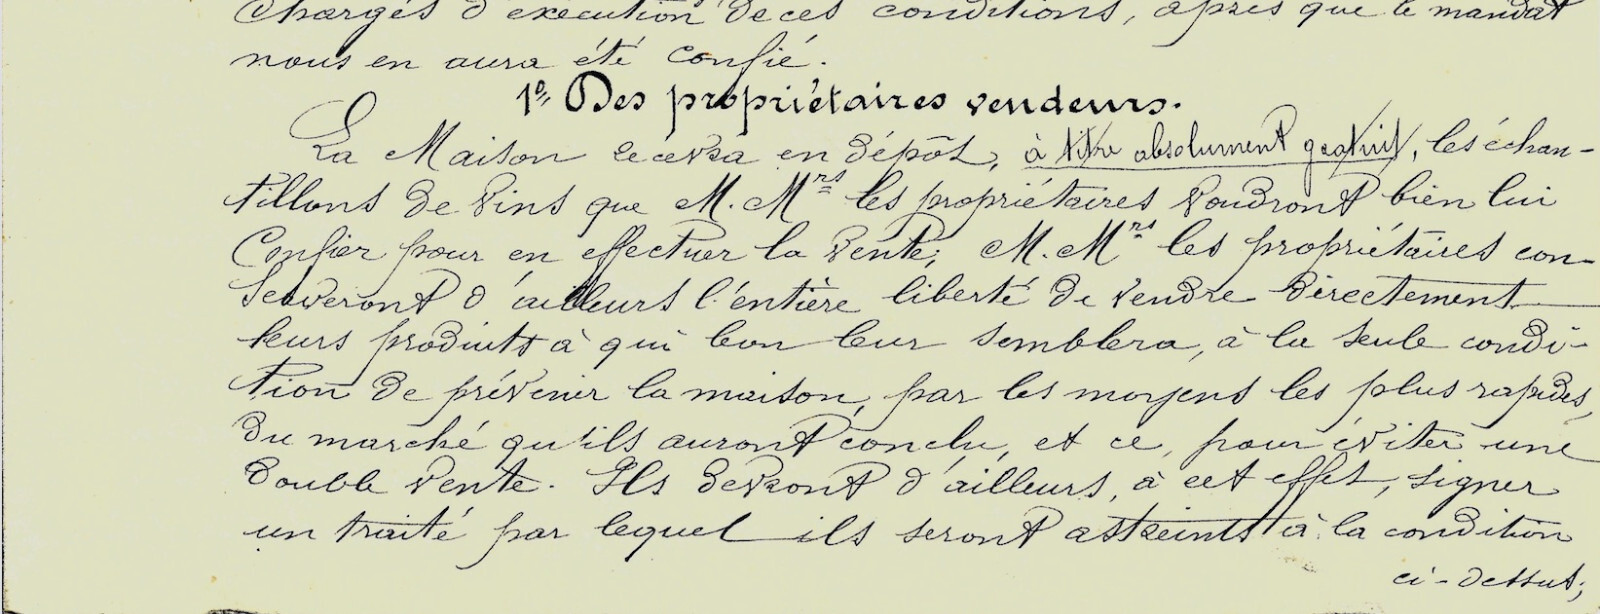 chargés d'exécution de ces conditions, après que le mandat
nous en aura été confié.
1º, Des propriétaires vendeurs.
La Maison recevra en dépôt, à titre absolument gratuit, les échan-
tillons de vins que M. Mrs les propriétaires voudront bien lui
confier pour en effectuer la vente; M. Mrs les propriétaires con-
serveront d'ailleurs l'entière liberté de vendre directement
leurs produits à qui bon leur semblera, à la seule condi-
tion de prévenir la maison, par les moyens les plus rapides,
du marché qu'ils auront conclu, et ce, pour éviter une
double vente. Ils devront d'ailleurs, à cet effet, signer
un traité par lequel ils seront astreints à la condition
ci-dessus;